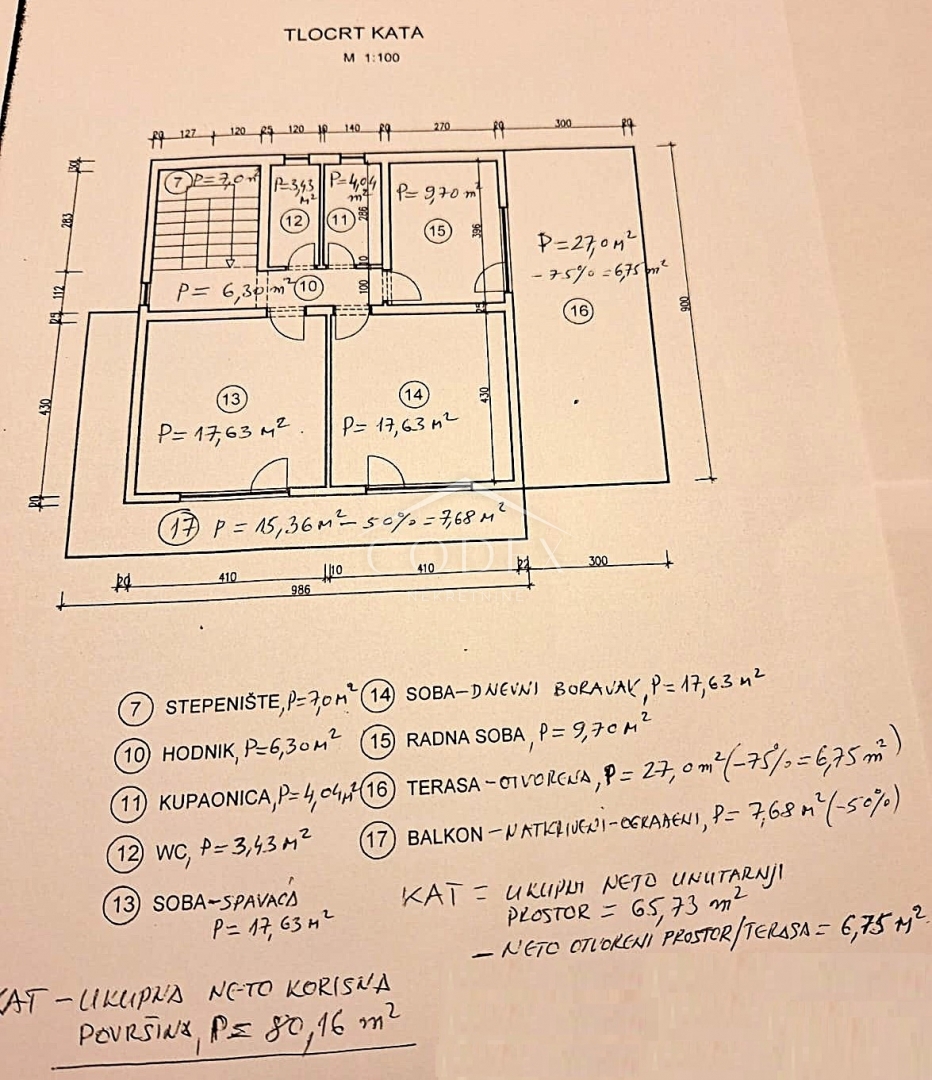 TLOCRT KATA
M 1:100
20 127 120 25 120 10 140 20 270 20 300 20
7 P=7,0 m²
P=3,43 m²
12
P=4,04 m²
11
286
P=9,70 m²
15
396
P=27,0 m²
-75%=6,75 m²
16
283
112
25
430
20
10
100
25
430
900
P= 6,30 m² 10
13
P=17,63 m².
14
P=17,63 m²
17 P=15,36 m²-50%=7,68 m²
CODEX
NEKRETNINE
20 410 10 410 22 300
986
7 STEPENIŠTE, P=7,0 m²
10 HODNIK, P=6,30 m²
11 KUPAONICA, P=4,04 m²
12 WC, P=3,43 m²
13 SOBA-SPAVAĆA
P=17,63 m²
14 SOBA-DNEVNI BORAVAK, P=17,63 m²
15 RADNA SOBA, P=9,70 m²
16 TERASA-OTVORENA, P=27,0 m² (-75%=6,75 m²)
17 BALKON-NATKRIVENI-OGRAĐENI, P=7,68 m² (-50%)
KAT = UKUPNI NETO UNUTARNJI
PROSTOR = 65,73 m²
- NETO OTVORENI PROSTOR/TERASA = 6,75 m²
KAT - UKUPNA NETO KORISNA
POVRŠINA, P= 80,16 m²